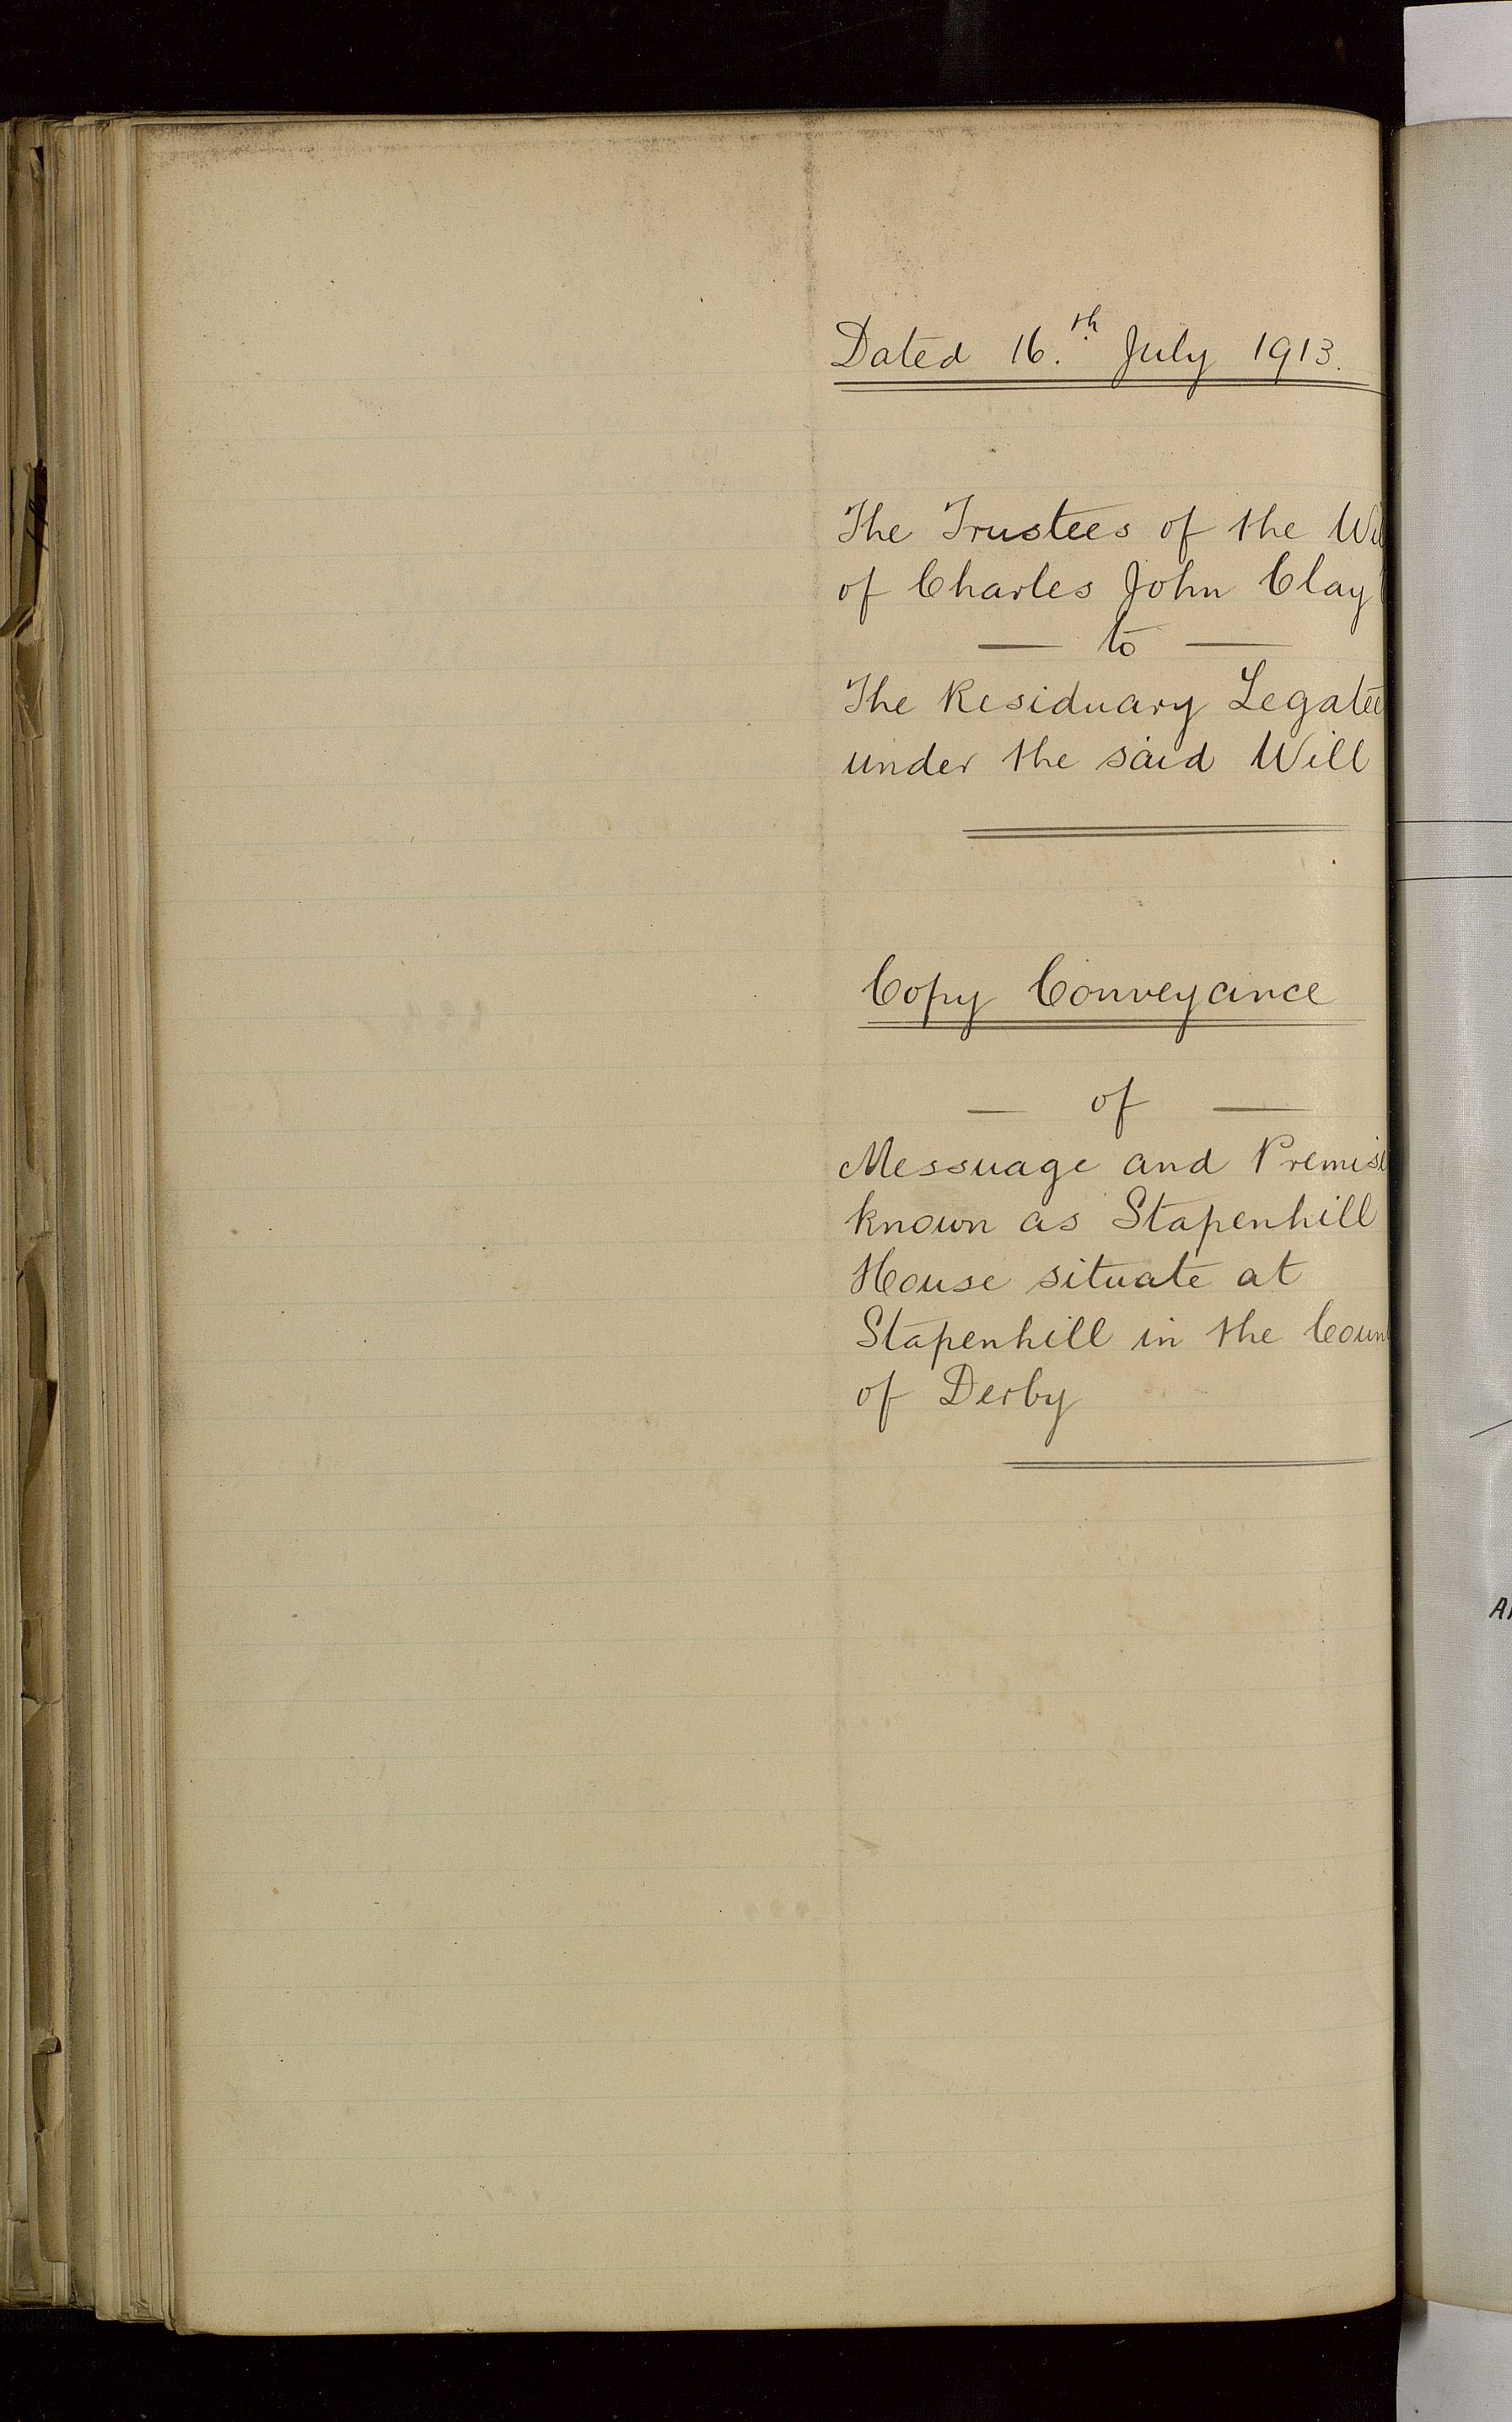 Dated 16.th July 1913.
The Trustees of the
of Charles John Clay
— to —
The Residuary Legatee
under the said Will
Copy Conveyance
— of —
Messuage and
known as Stapenhill
House situate at
Stapenhill in the
of Derby